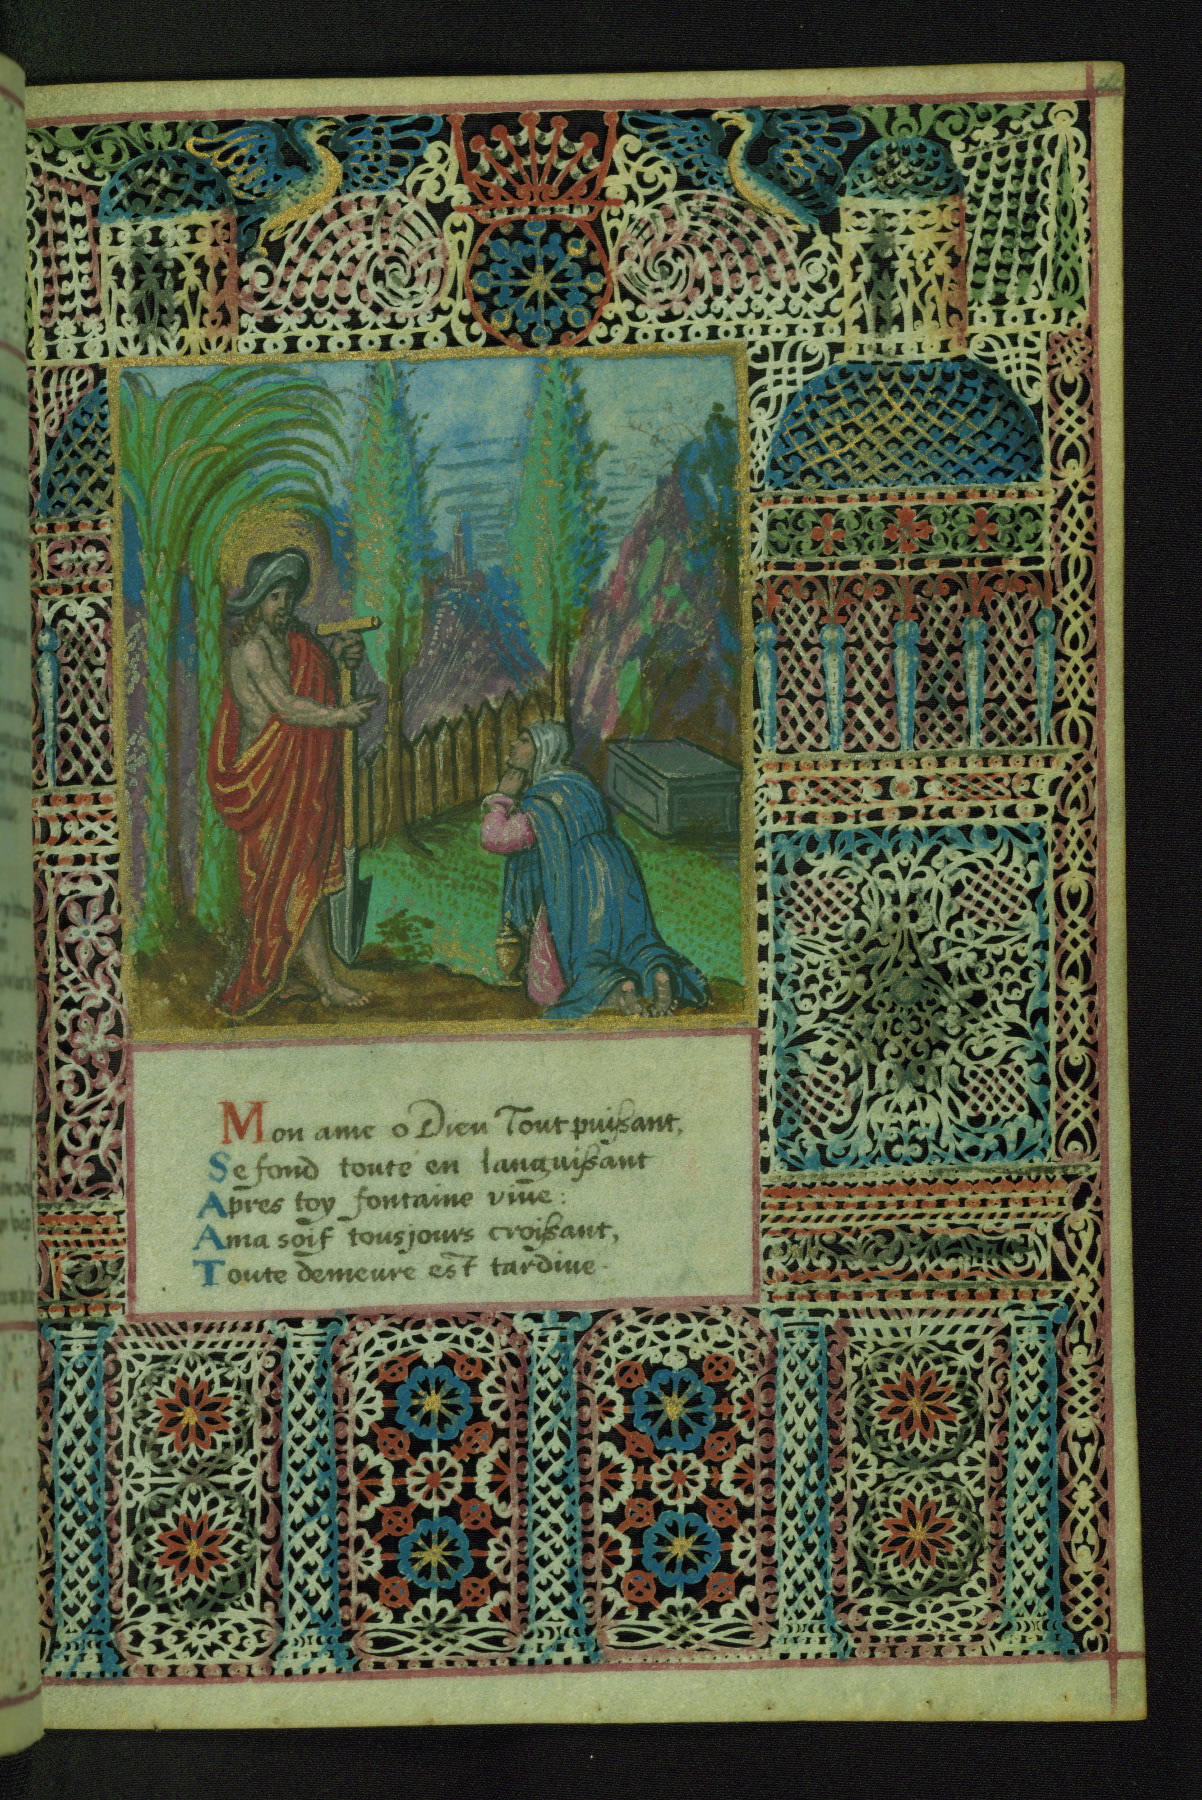 Mon ame o Dieu Tout puißant,
Se fond toute en languißant
Apres toy fontaine viue:
Ama soif tousjours croißant,
Toute demeure est tardiue.